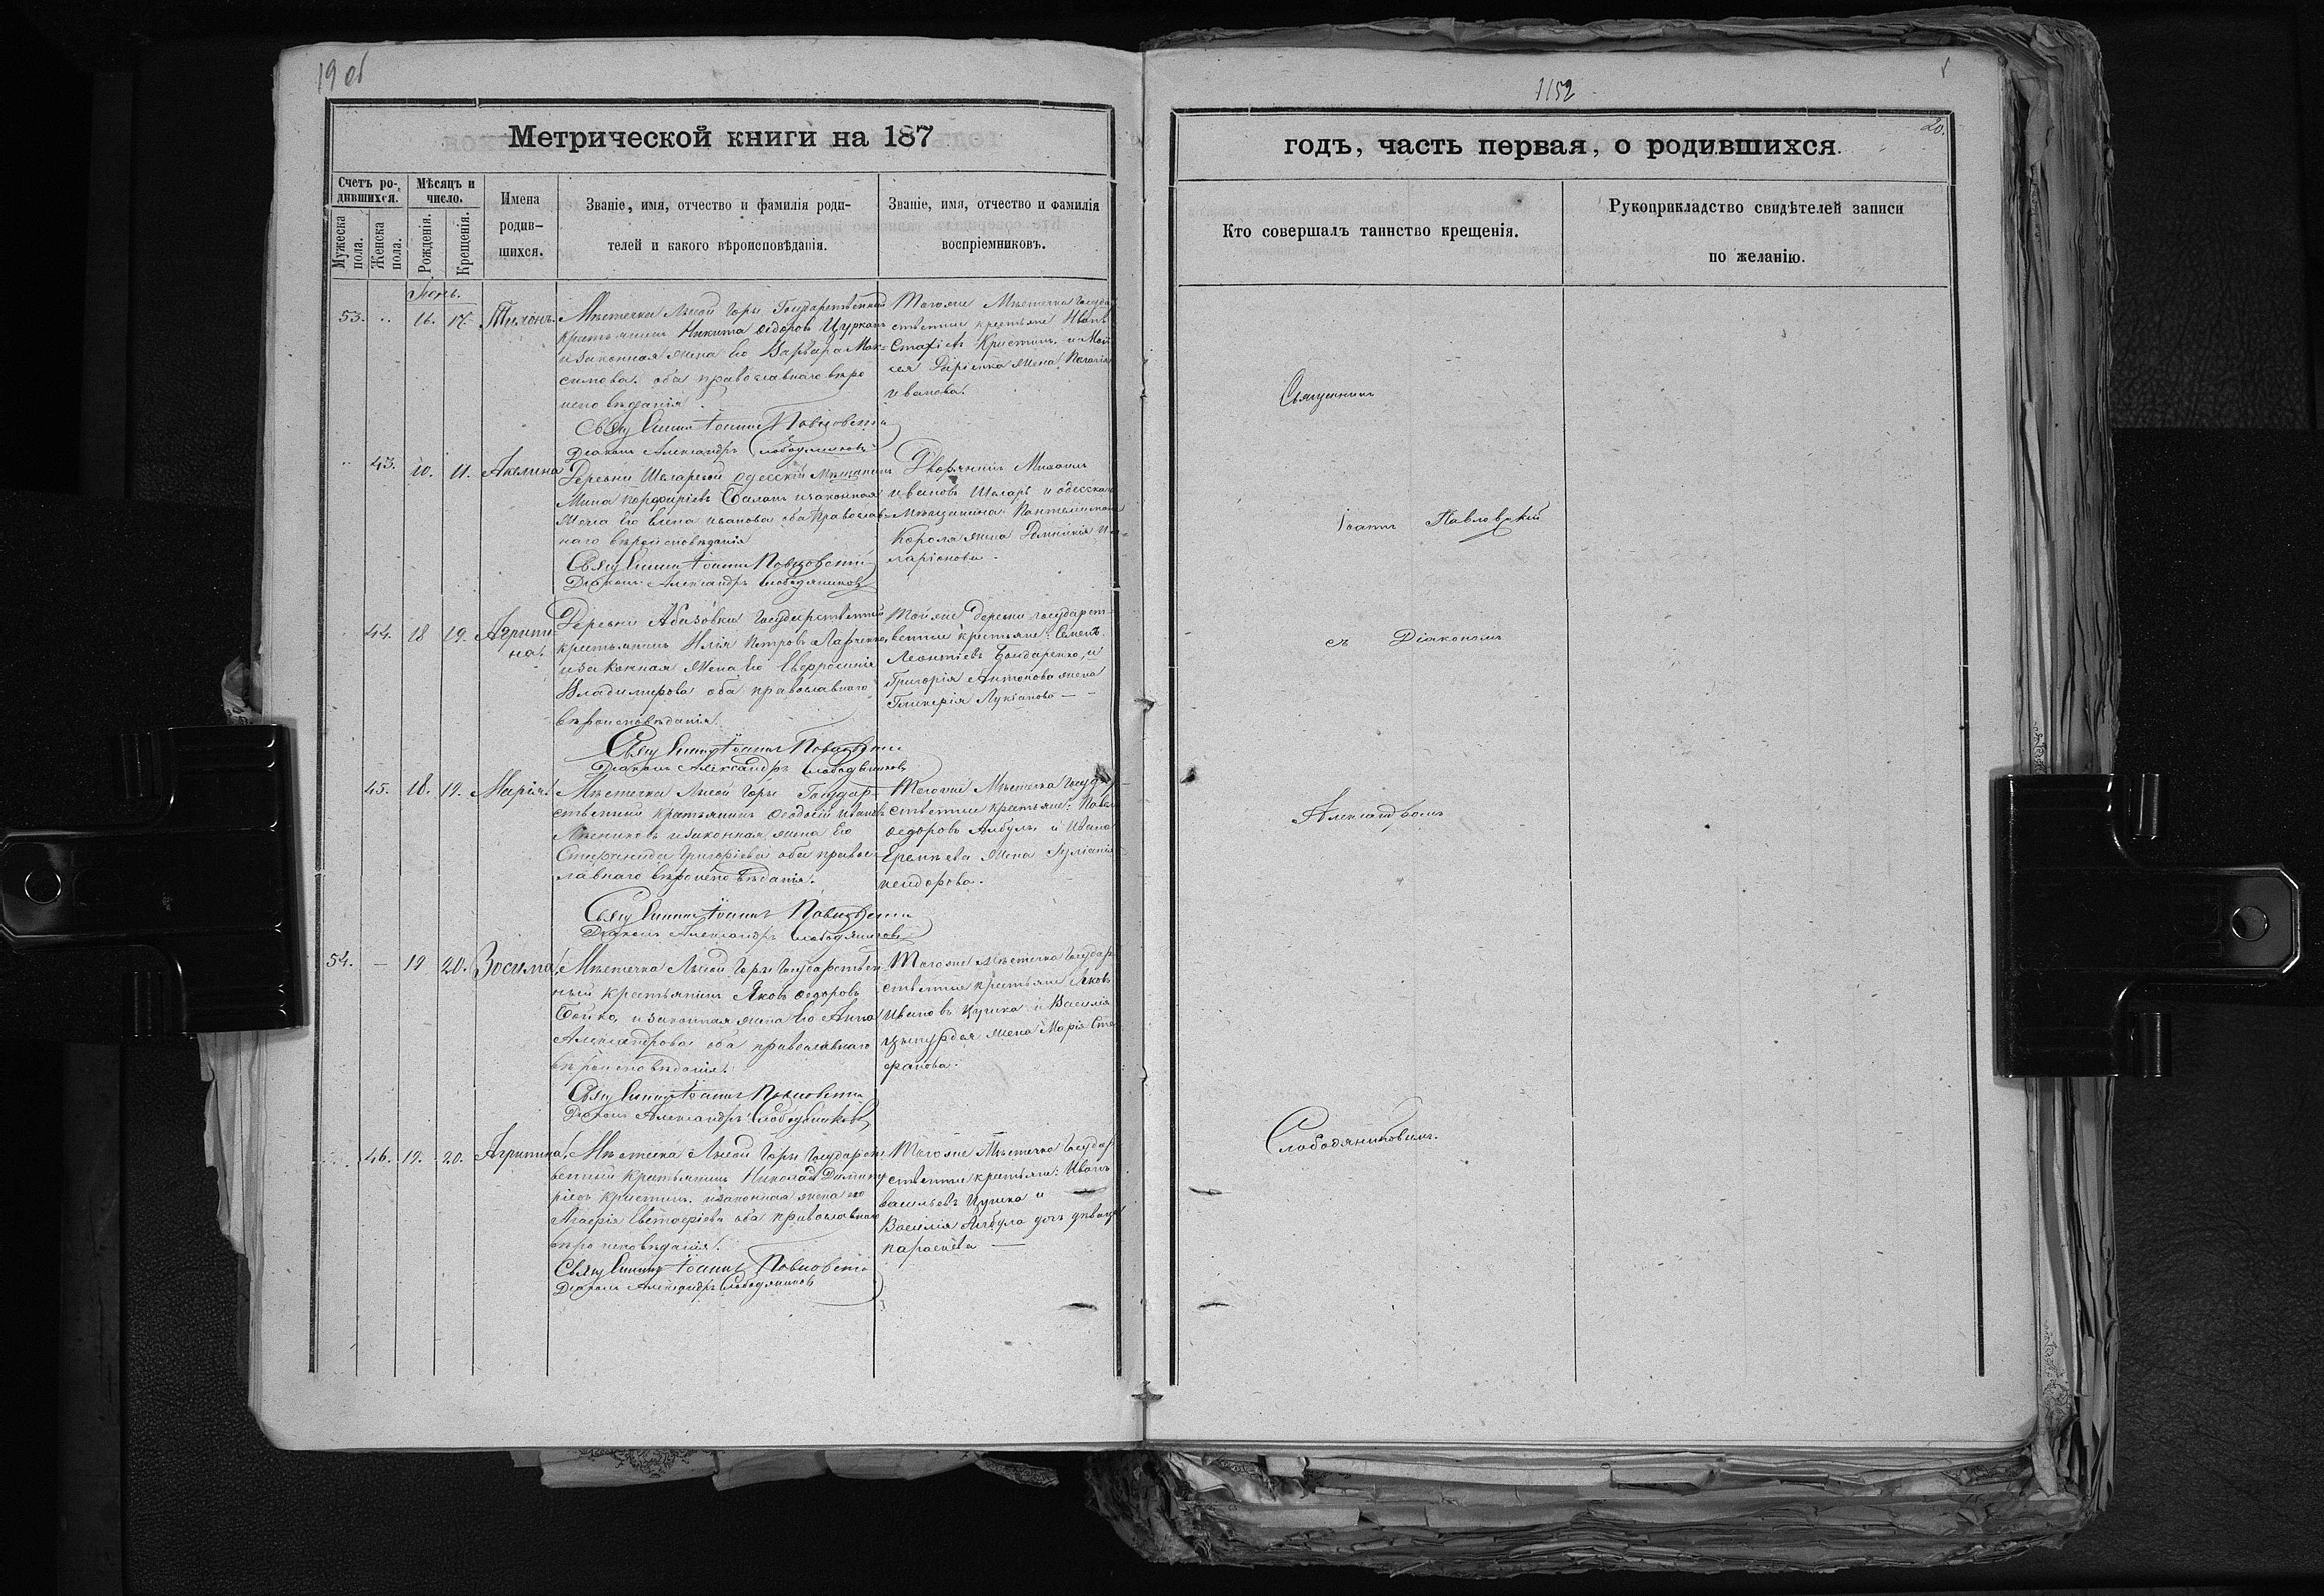 19 об
Метрической книги на 187
Счетъ ро-
дившихся.
Мужеска
пола.
Женска
пола.
Мѣсяцъ и
число.
Рожденія.
Крещенія.
Имена
родив-
шихся.
Званіе, имя, отчество и фамилія роди-
телей и какого вѣроисповѣданія.
Званіе, имя, отчество и фамилія
воспріемниковъ.
Іюнь.
53. 16. 17. Тихонъ.
Мѣстечка Лысой Горы Государственный
крестьянинъ Никита Ѳедоровъ Цурканъ
и законная жена его Варвара Мак-
симова оба православнаго вѣро
исповѣданія
Священникъ Іоаннъ Павловскій
Діаконъ Александръ Слободяниковъ
Тогоже Мѣстечка Государ
ственные крестьяне Иванъ
жена Пелагія
Иванова.
43. 10. 11. Акелина
Деревни Шкларевой Одесскій Мѣщанинъ
Мина Порфиріевъ Баланъ и законная
жена его Елена Иванова оба православ-
наго вѣроисповѣданія
Священникъ Іоаннъ Павловскій
Діаконъ Александръ Слободяниковъ
Дворянинъ Михаилъ
Ивановъ Шкларь и одесскаго
Мѣщанина Пантелимона
Короля жена Домникія Ил-
ларіонова.
44. 18 19. Агрипи-
на.
Деревни Абазовки Государственный
крестьянинъ Илія Петровъ Ларченко
и законная жена его Евфросинія
Владимирова оба православнаго
вѣроисповѣданія
Священникъ Іоаннъ Павловскій
Діаконъ Александръ Слободяниковъ
Той же деревни государст-
венные крестьяне: Семенъ
Леонтіевъ Бондаренко, и
Григорія Антонова жена
Гликерія Лукіанова
45. 18. 19. Марія.
Мѣстечка Лысой Горы Государ-
ственный крестьянинъ Ѳеодосій Ивановъ
и законная жена его
Стефанида Григоріева оба правос-
лавнаго вѣроисповѣданія.
Священникъ Іоаннъ Павловскій
Діаконъ Александръ Слободяниковъ
Тогоже Мѣстечка Государ-
ственные крестьяне: Павелъ
Ѳедоровъ Албулъ и Ивана
Еремѣева жена Іуліанія
54. — 19 20. Зосима.
Мѣстечка Лысой Горы Государствен-
ный крестьянинъ Яковъ Ѳедоровъ
Бойко, и законная жена его Анна
Александрова оба православнаго
вѣроисповѣданія.
Священникъ Іоаннъ Павловскій
Діаконъ Александръ Слободяниковъ
Тогоже Мѣстечка Государ
ственные крестьяне Яковъ
Ивановъ Цушка и Василія
жена Марія Сте-
фанова.
46. 19. 20. Агрипина.
Мѣстечка Лысой Горы Государст
венный крестьянинъ Николай Димит
ріевъ Кристинъ и законная жена его
Агафія Евстафіева оба православнаго
вѣроисповѣданія.
Священникъ Іоаннъ Павловскій
Діаконъ Александръ Слободяниковъ
Тогоже Мѣстечка Государ
ственные крестьяне: Иванъ
Васильевъ Цушка и
Василія Албула дочь дѣвица
Параскева
1152
20.
годъ, часть первая, о родившихся.
Кто совершалъ таинство крещенія.
Рукоприкладство свидѣтелей записи
по желанію.
Священникъ
Іоаннъ Павловскій
съ Діакономъ
Александромъ
Слободяниковымъ.